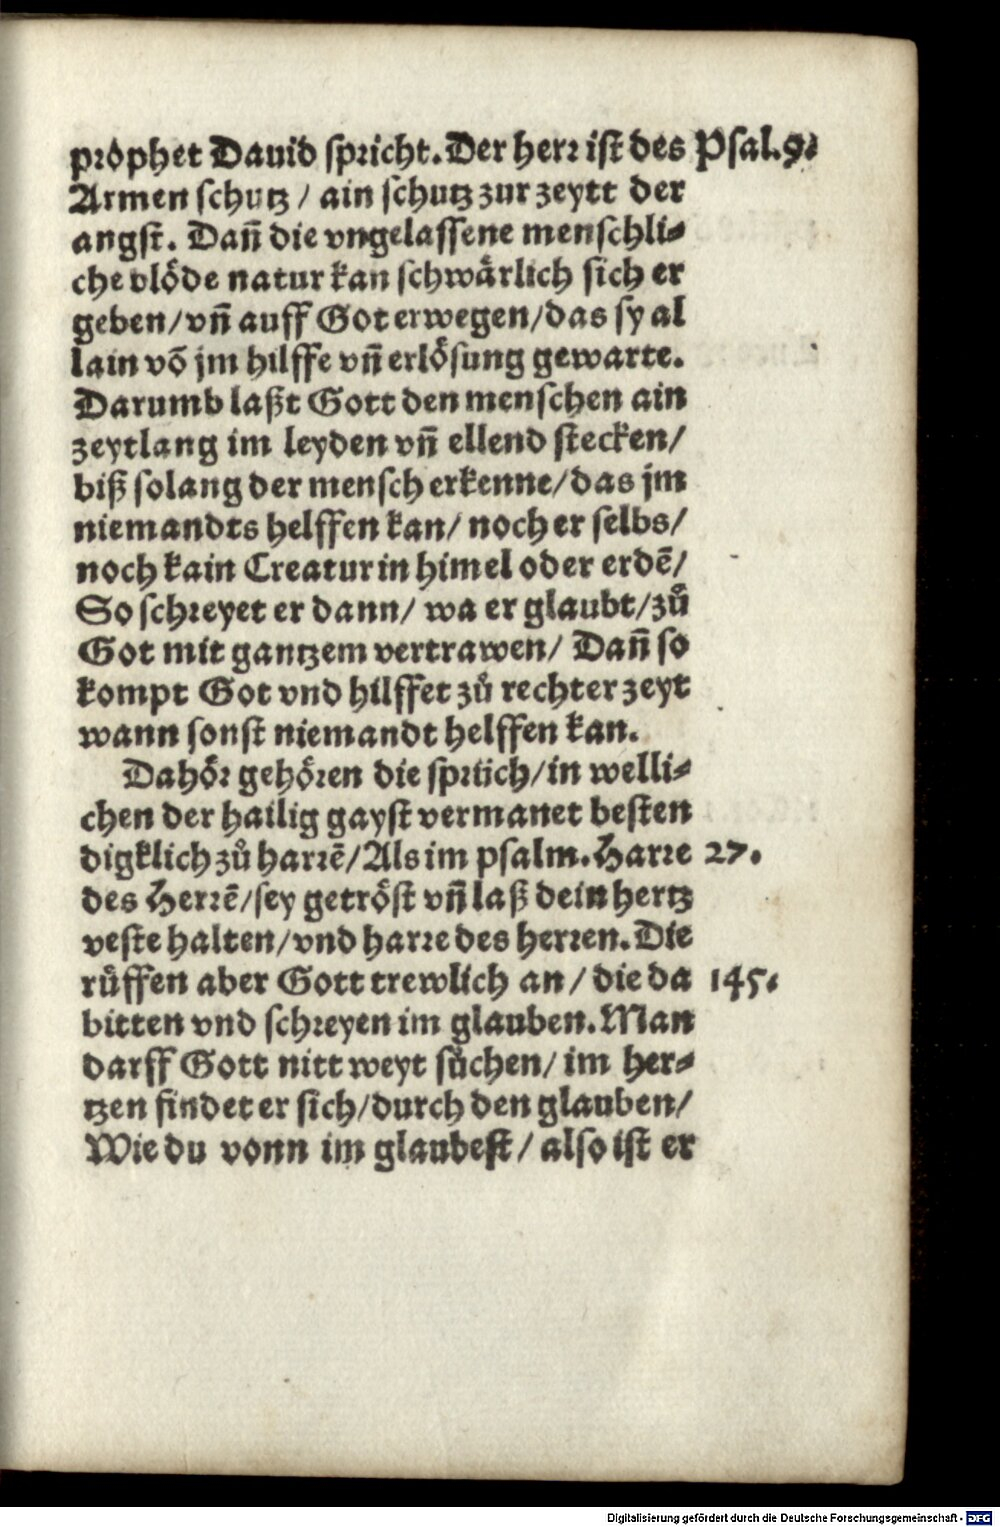 prophet Dauid spricht. Der herr ist des Psal. 9.
Armen schutz / ain schutz zur zeytt der
angst. Dañ die vngelassene menschli-
che vlöde natur kan schwärlich sich er
geben / vñ auff Got erwegen / das sy al
lain võ jm hilffe vñ erlösung gewarte.
Darumb laßt Gott den menschen ain
zeytlang im leyden vñ ellend stecken /
biß solang der mensch erkenne / das jm
niemandts helffen kan / noch er selbs /
noch kain Creatur in himel oder erdē /
So schreyet er dann / wa er glaubt / zů
Got mit gantzem vertrawen / Dañ so
kompt Got vnd hilffet zů rechter zeyt
wann sonst niemandt helffen kan.
Dahör gehören die sprüch / in welli-
chen der hailig gayst vermanet besten
digklich zů harrē / Als im psalm. Harre 27.
des Herrē / sey getröst vñ laß dein hertz
veste halten / vnd harre des herren. Die
růffen aber Gott trewlich an / die da 145.
bitten vnd schreyen im glauben. Man
darff Gott nitt weyt sůchen / im her-
tzen findet er sich / durch den glauben /
Wie du vonn im glaubest / also ist er
Digitalisierung gefördert durch die Deutsche Forschungsgemeinschaft - DFG